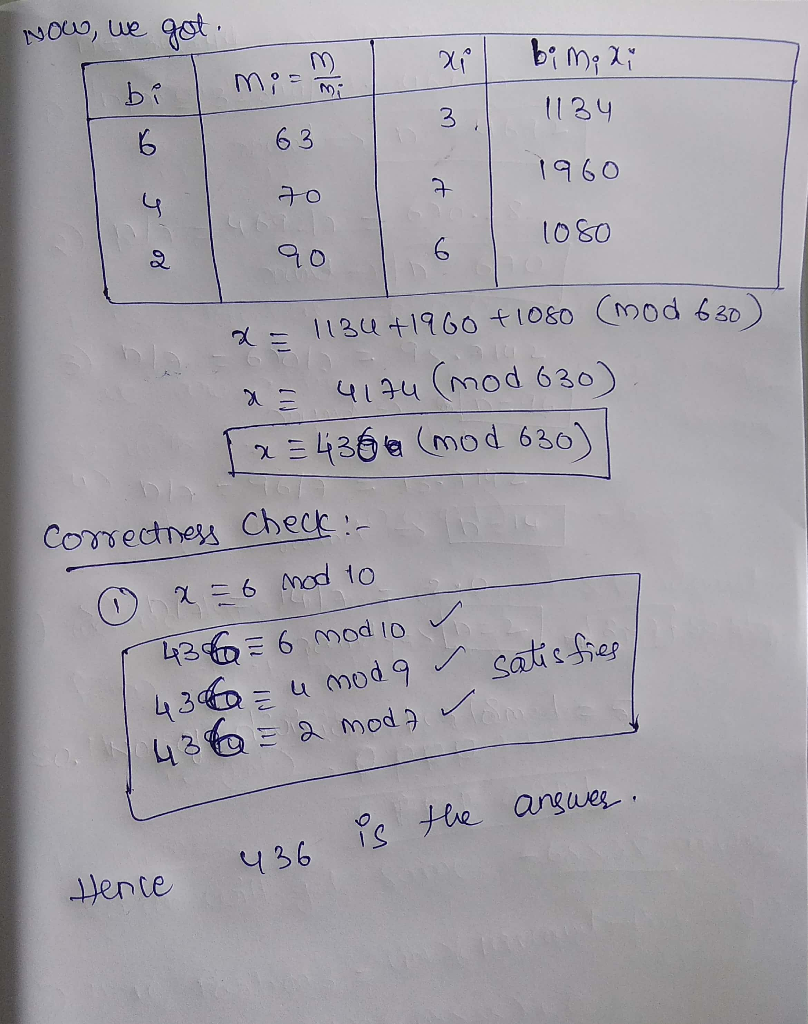 Now, we got.
bi Mi = M/mi xi bi Mi xi
6 63 3 1134
4 70 7 1960
2 90 6 1080
x ≡ 1134 + 1960 + 1080 (mod 630)
x ≡ 4174 (mod 630)
x ≡ 436 (mod 630)
Correctness Check :-
① x ≡ 6 mod 10
436 ≡ 6 mod 10 ✓
436 ≡ 4 mod 9 ✓ satisfies
436 ≡ 2 mod 7 ✓
Hence 436 is the answer.